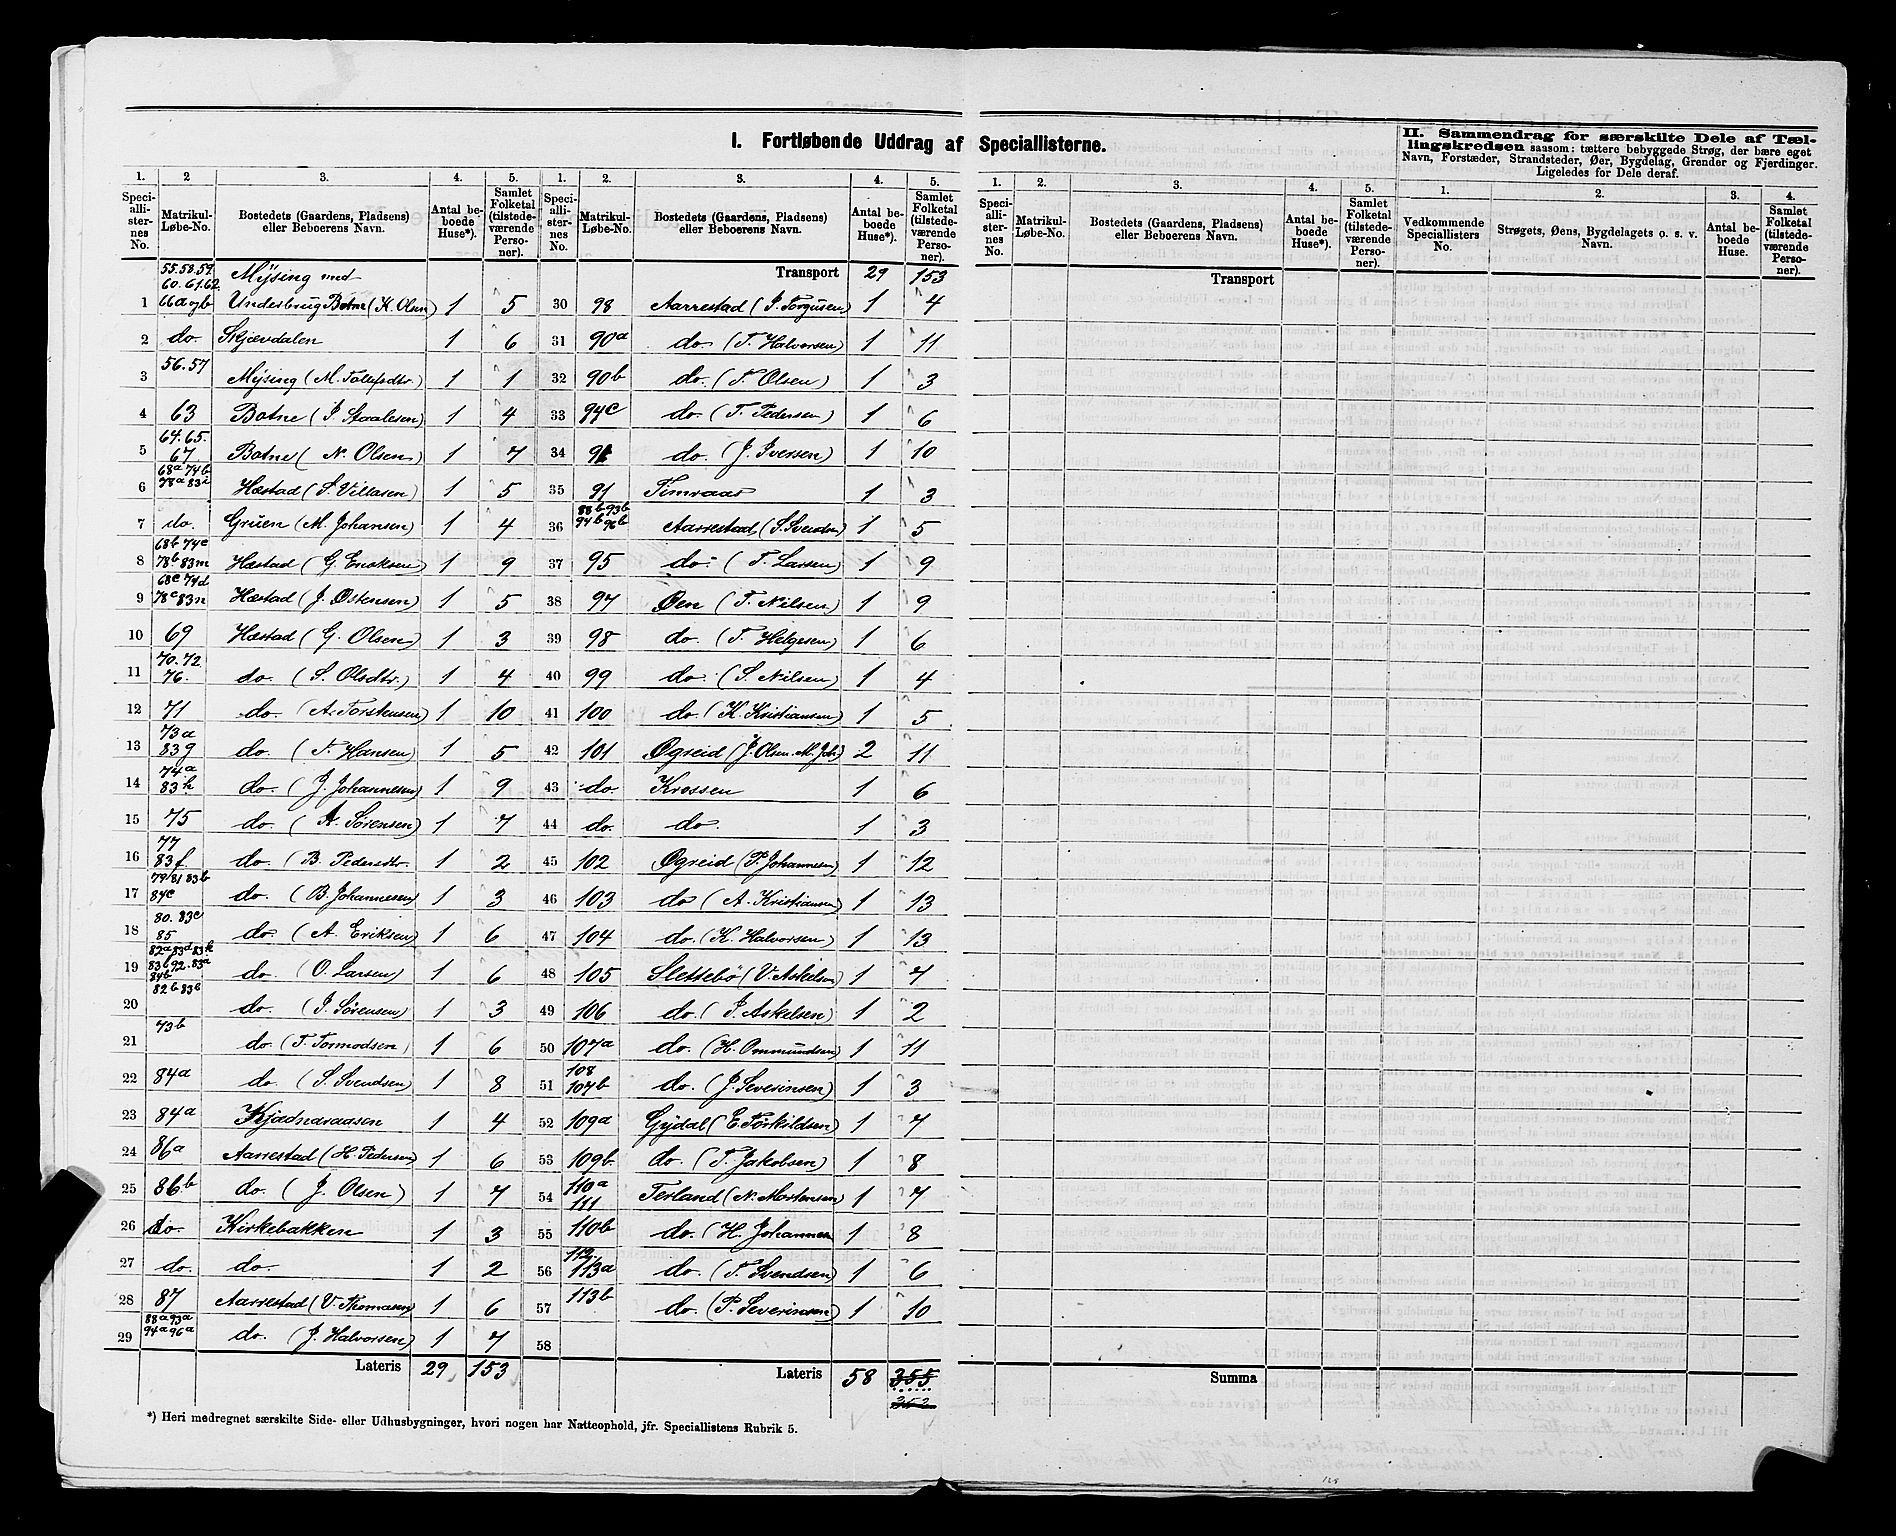 I. Fortløbende Uddrag af Speciallisterne.
1. 2 3. 4. 5.
Speciallisternes No. Matrikul-Løbe-No. Bostedets (Gaardens, Pladsens) eller Beboerens Navn. Antal beboede Huse*). Samlet Folketal (tilstedeværende Personer).
55.58.59. 60.61.62. Mÿsing med
1 66a og b Underbrug Botne (K. Olsen) 1 5
2 do. Skjævdalen 1 6
3 56.57 Mÿsing (M. Tollefsdtr.) 1 1
4 63 Botne (J. Staalesen) 1 4
5 64.65. 67. Botne (N. Olsen) 1 7
6 68a 74b 78a 83i Hæstad (S. Villasen) 1 5
7 do. Gruen (M. Johansen) 1 4
8 68b 74c 78b 83m Hæstad (G. Eriksen) 1 9
9 68c 74d 78c 83n Hæstad (J. Østensen) 1 5
10 69 Hæstad (G. Olsen) 1 3
11 70.72. 76. do. (S. Olsdtr.) 1 4
12 71 do. (A. Torstensen) 1 10
13 73a 83g do. (T. Hansen) 1 5
14 74a 83h do. (J. Johannesen) 1 9
15 75 do. (A. Sörensen) 1 7
16 77 83f. do. (B. Pedersdtr. 1 2
17 79 81 83b 84c do. (B. Johannesen) 1 3
18 80. 83c 85 do. (A. Eriksen) 1 6
19 82a 83d 83k 83l 92. 83a 84b do. (O. Larsen) 1 6
20 82b 83b do. (J. Sörensen) 1 3
21 73b do. (T. Tormodsen) 1 6
22 84a do. (S. Svendsen) 1 8
23 84a Kjædnaraasen 1 4
24 86a Aarrestad (H. Pedersen) 1 6
25 86.b do. (J. Olsen) 1 7
26 do. Kirkebakken 1 3
27 do. do. 1 2
28 87 Aarrestad (V. Thomasen) 1 6
29 88a 93a 94a 96a do. (J. Halvorsen) 1 7
Lateris 29 153
1. 2. 3. 4. 5.
Speciallisternes No. Matrikul-Løbe-No. Bostedets (Gaardens, Pladsens) eller Beboerens Navn. Antal beboede Huse*). Samlet Folketal (tilstedeværende Personer).
Transport 29 153
30 98 Aarrestad (J. Torgusen) 1 4
31 90a do. (T. Halvorsen) 1 11
32 90b do. (T. Olsen) 1 3
33 94c do. (T. Pedersen) 1 6
34 do. (J. Iversen) 1 10
35 91 Timraas 1 3
36 88b 93b 94b 96b Aarrestad (S. Svendsen) 1 5
37 95 do. (T. Larsen) 1 9
38 97 Øen (T. Nilsen) 1 9
39 98 do. (T. Helgesen) 1 6
40 99 do. (S. Nilsen) 1 4
41 100 do. (K. Kristiansen) 1 5
42 101 Øgreid (J. Olsen. M. Joh.) 2 11
43 do. Krossen 1 6
44 do. do. 1 3
45 102 Øgreid (P. Johannesen) 1 12
46 103 do (A. Kristiansen) 1 13
47 104 do. (K. Halvorsen) 1 13
48 105 Slettebö (V. Askelsen) 1 7
49 106 do. (J. Askelsen) 1 2
50 107a do. (H. Ommundsen) 1 11
51 108 107b do. (J. Severinsen) 1 3
52 109a Gÿdal (E. Törkildsen) 1 7
53 109b. do. (T. Jakobsen) 1 8
54 110a 111 Terland (N. Mortensen) 1 7
55 110b do. (H. Johannes 1 8
56 112. 113a do. (T. Svendsen) 1 6
57 113b do. (P. Severinsen) 1 10
58
Lateris 58 355
*) Heri medregnet særskilte Side- eller Udhusbygninger, hvori nogen har Natteophold, jfr. Speciallistens Rubrik 5.
1. 2. 3. 4. 5.
Speciallisternes No. Matrikul-Løbe-No. Bostedets (Gaardens, Pladsens) eller Beboerens Navn. Antal beboede Huse*). Samlet Folketal (tilstedeværende Personer).
Transport
Summa
II. Sammendrag for særskilte Dele af Tællingskredsen saasom: tættere bebyggede Strøg, der bære eget Navn, Forstæder, Strandsteder, Øer, Bygdelag, Grender og Fjerdinger. Ligeledes for Dele deraf.
1. 2. 3. 4.
Vedkommende Speciallisters No. Strøgets, Øens, Bygdelagets o. s. v. Navn. Antal beboede Huse. Samlet Folketal (tilstedeværende Personer).